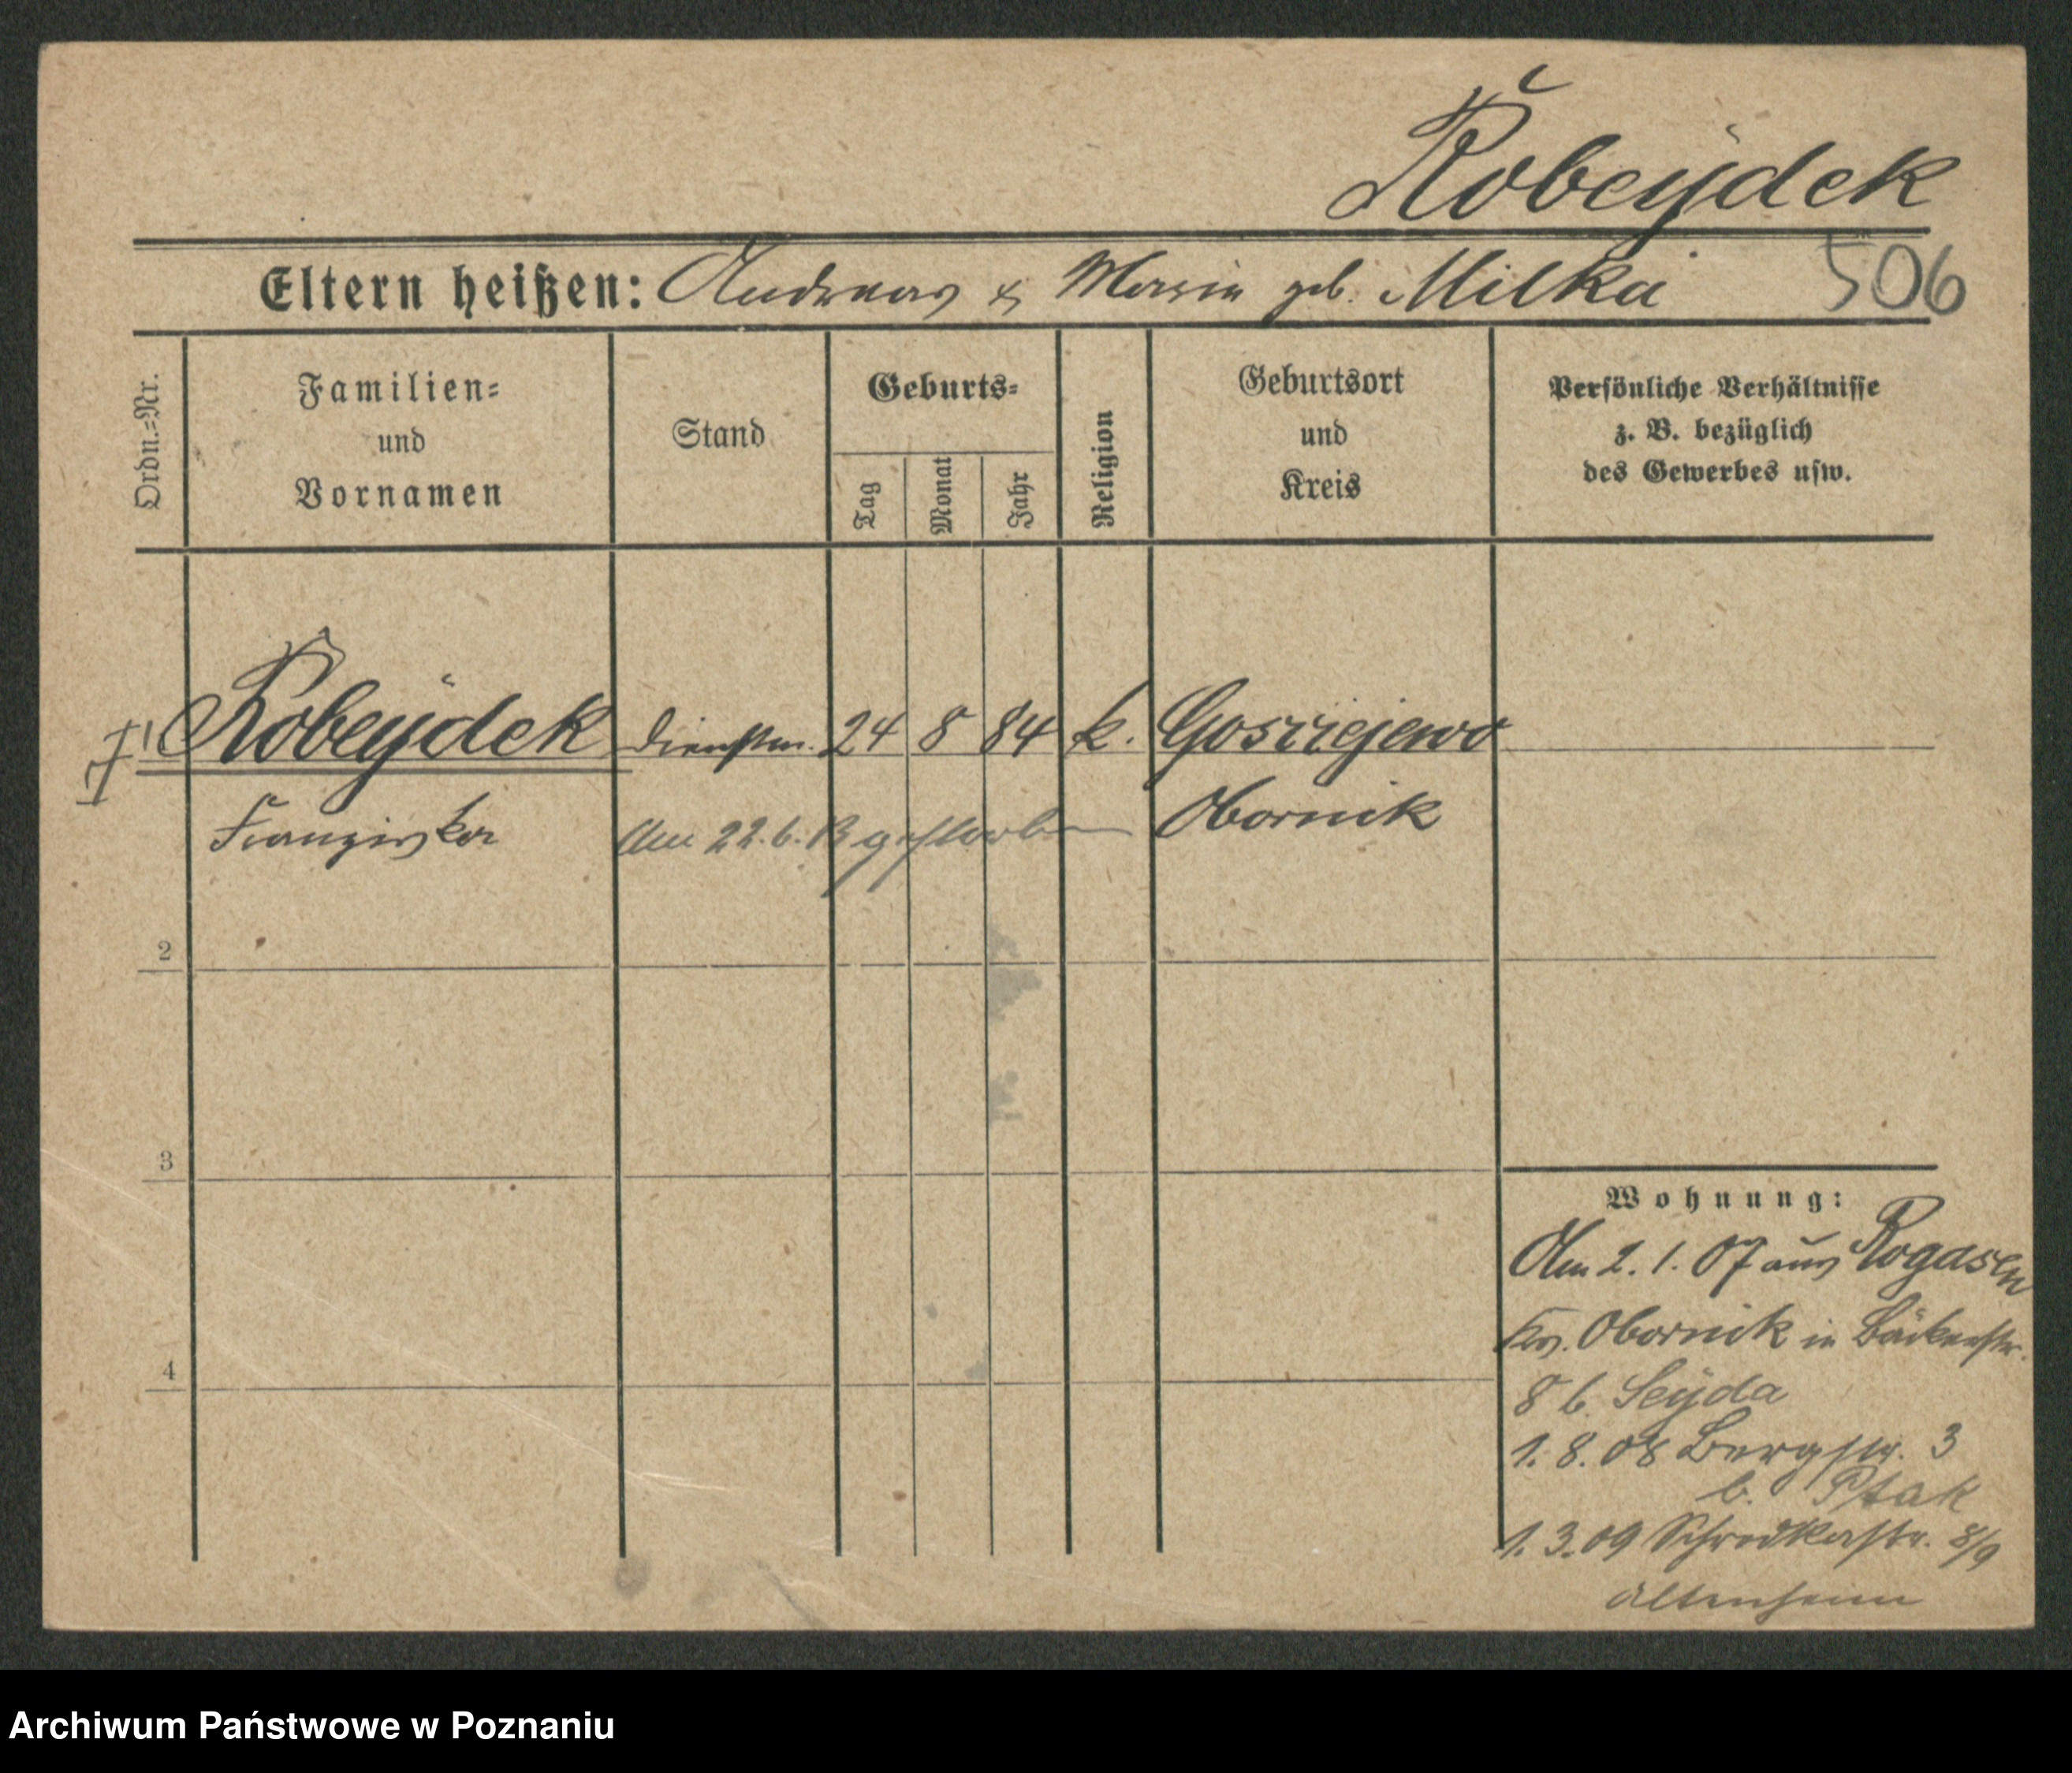 Robeÿdek
Eltern heißen: Andreas & Marie geb. Milka 506
Ordn.=Nr.
Familien=
und
Vornamen
Stand
Geburts=
Tag
Monat
Jahr
Religion
Geburtsort
und
Kreis
Persönliche Verhältnisse
z. B. bezüglich
des Gewerbes usw.
1 Robeÿdek Dienstm. 24 8 84 k. Gosciejewo
Franziska Am 22.6.13 gestorben Obornik
2
3
4
Wohnung:
Am 2.1.07 aus Rogasen
Krs. Obornik in Bäckerstr.
8 b. Seÿda
1.8.08 Bergstr. 3
b. Ptak
1.3.09 Schrodkastr. 8/9
Altenheim
Archiwum Państwowe w Poznaniu